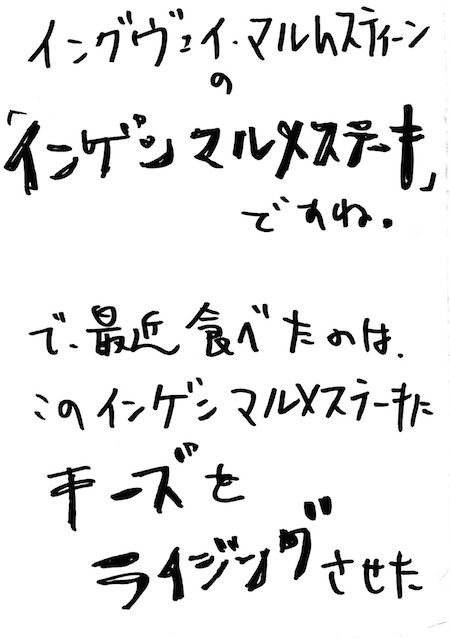 イングヴェイ・マルムスティーン
の
「インゲン マルメステーキ」
ですね。
で、最近食べたのは、
このインゲン マルメステーキに
チーズを
ライジングさせた